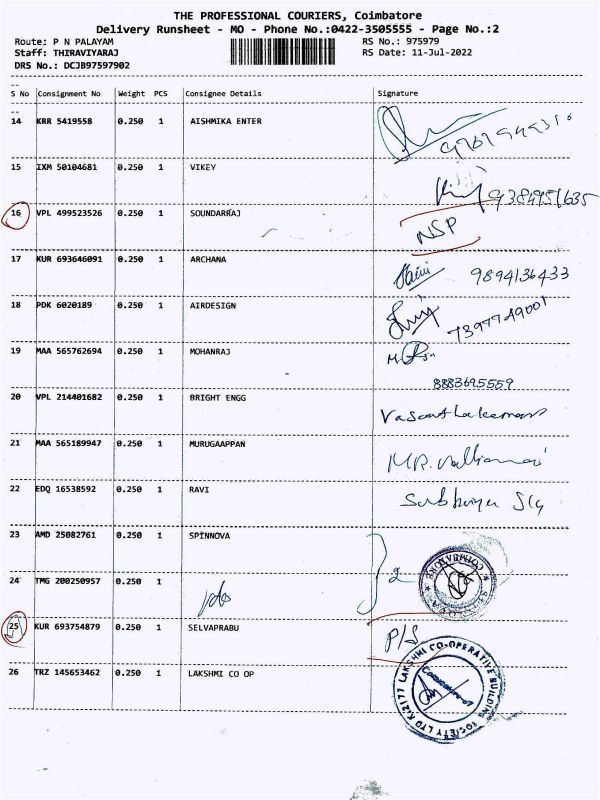 THE PROFESSIONAL COURIERS, Coimbatore
Delivery Runsheet - MO - Phone No.:0422-3505555 - Page No.:2
Route: P N PALAYAM RS No.: 975979
Staff: THIRAVIYARAJ RS Date: 11-Jul-2022
DRS No.: DCJB97597902
--
S No Consignment No Weight PCS Consignee Details Signature
--
14 KRR 5419558 0.250 1 AISHMIKA ENTER
15 IXM 50104681 0.250 1 VIKEY
9384951635
16 VPL 499523526 0.250 1 SOUNDARRAJ NSP
17 KUR 693646091 0.250 1 ARCHANA 9894136433
18 PDK 6020189 0.250 1 AIRDESIGN 7397749001
19 MAA 565762694 0.250 1 MOHANRAJ
8883695559
20 VPL 214401682 0.250 1 BRIGHT ENGG
21 MAA 565189947 0.250 1 MURUGAAPPAN
22 EDQ 16538592 0.250 1 RAVI
23 AMD 25082761 0.250 1 SPINNOVA
24 TMG 200250957 0.250 1 2
COIMBATORE
25 KUR 693754879 0.250 1 SELVAPRABU P/S
26 TRZ 145653462 0.250 1 LAKSHMI CO OP
LAKSHMI CO-OPERATIVE BUILDING SOCIETY LTD K/2177